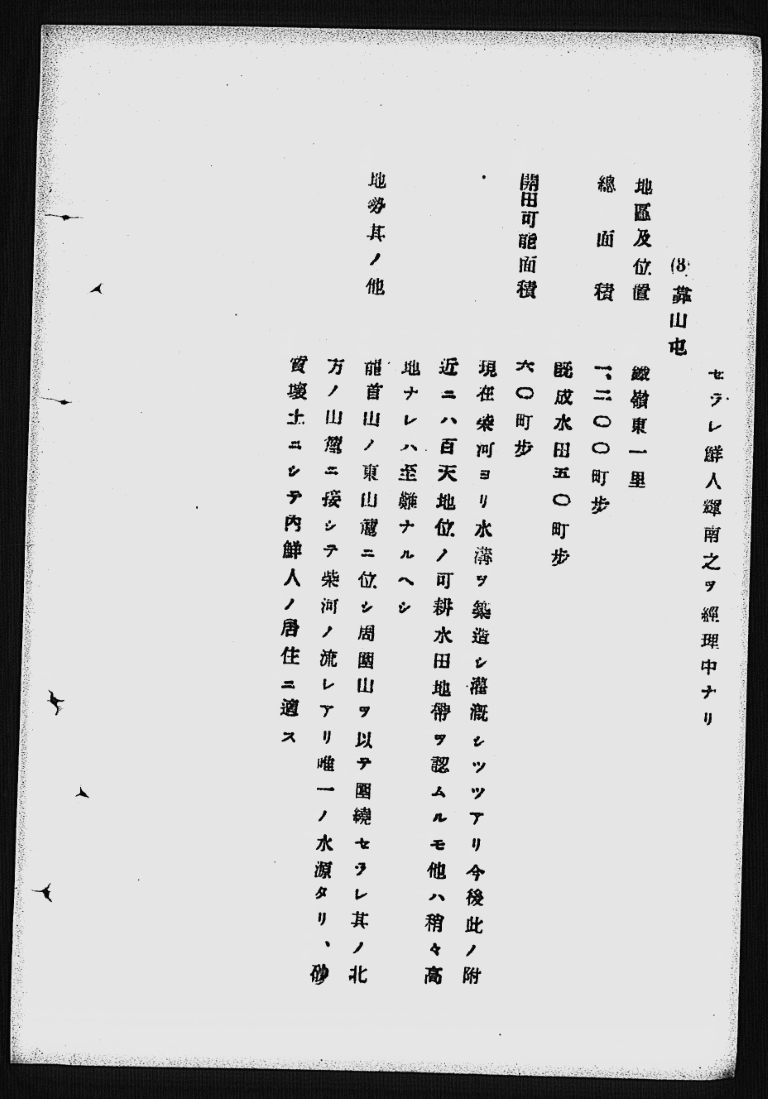 セラレ鮮人輝南之ヲ經理中ナリ
(8) 靠山屯
地區及位置 鐵嶺東一里
總面積 一、二〇〇町步
既成水田五〇町步
開田可能面積 六〇町步
現在柴河ヨリ水溝ヲ築造シ灌漑シツツアリ今後此ノ附
近ニハ百天地位ノ可耕水田地帶ヲ認ムルモ他ハ稍々高
地ナレハ至難ナルヘシ
地勢其ノ他 龍首山ノ東山麓ニ位シ周圍山ヲ以テ圍繞セラレ其ノ北
方ノ山麓ニ接シテ柴河ノ流レアリ唯一ノ水源タリ、砂
質壤土ニシテ內鮮人ノ居住ニ適ス